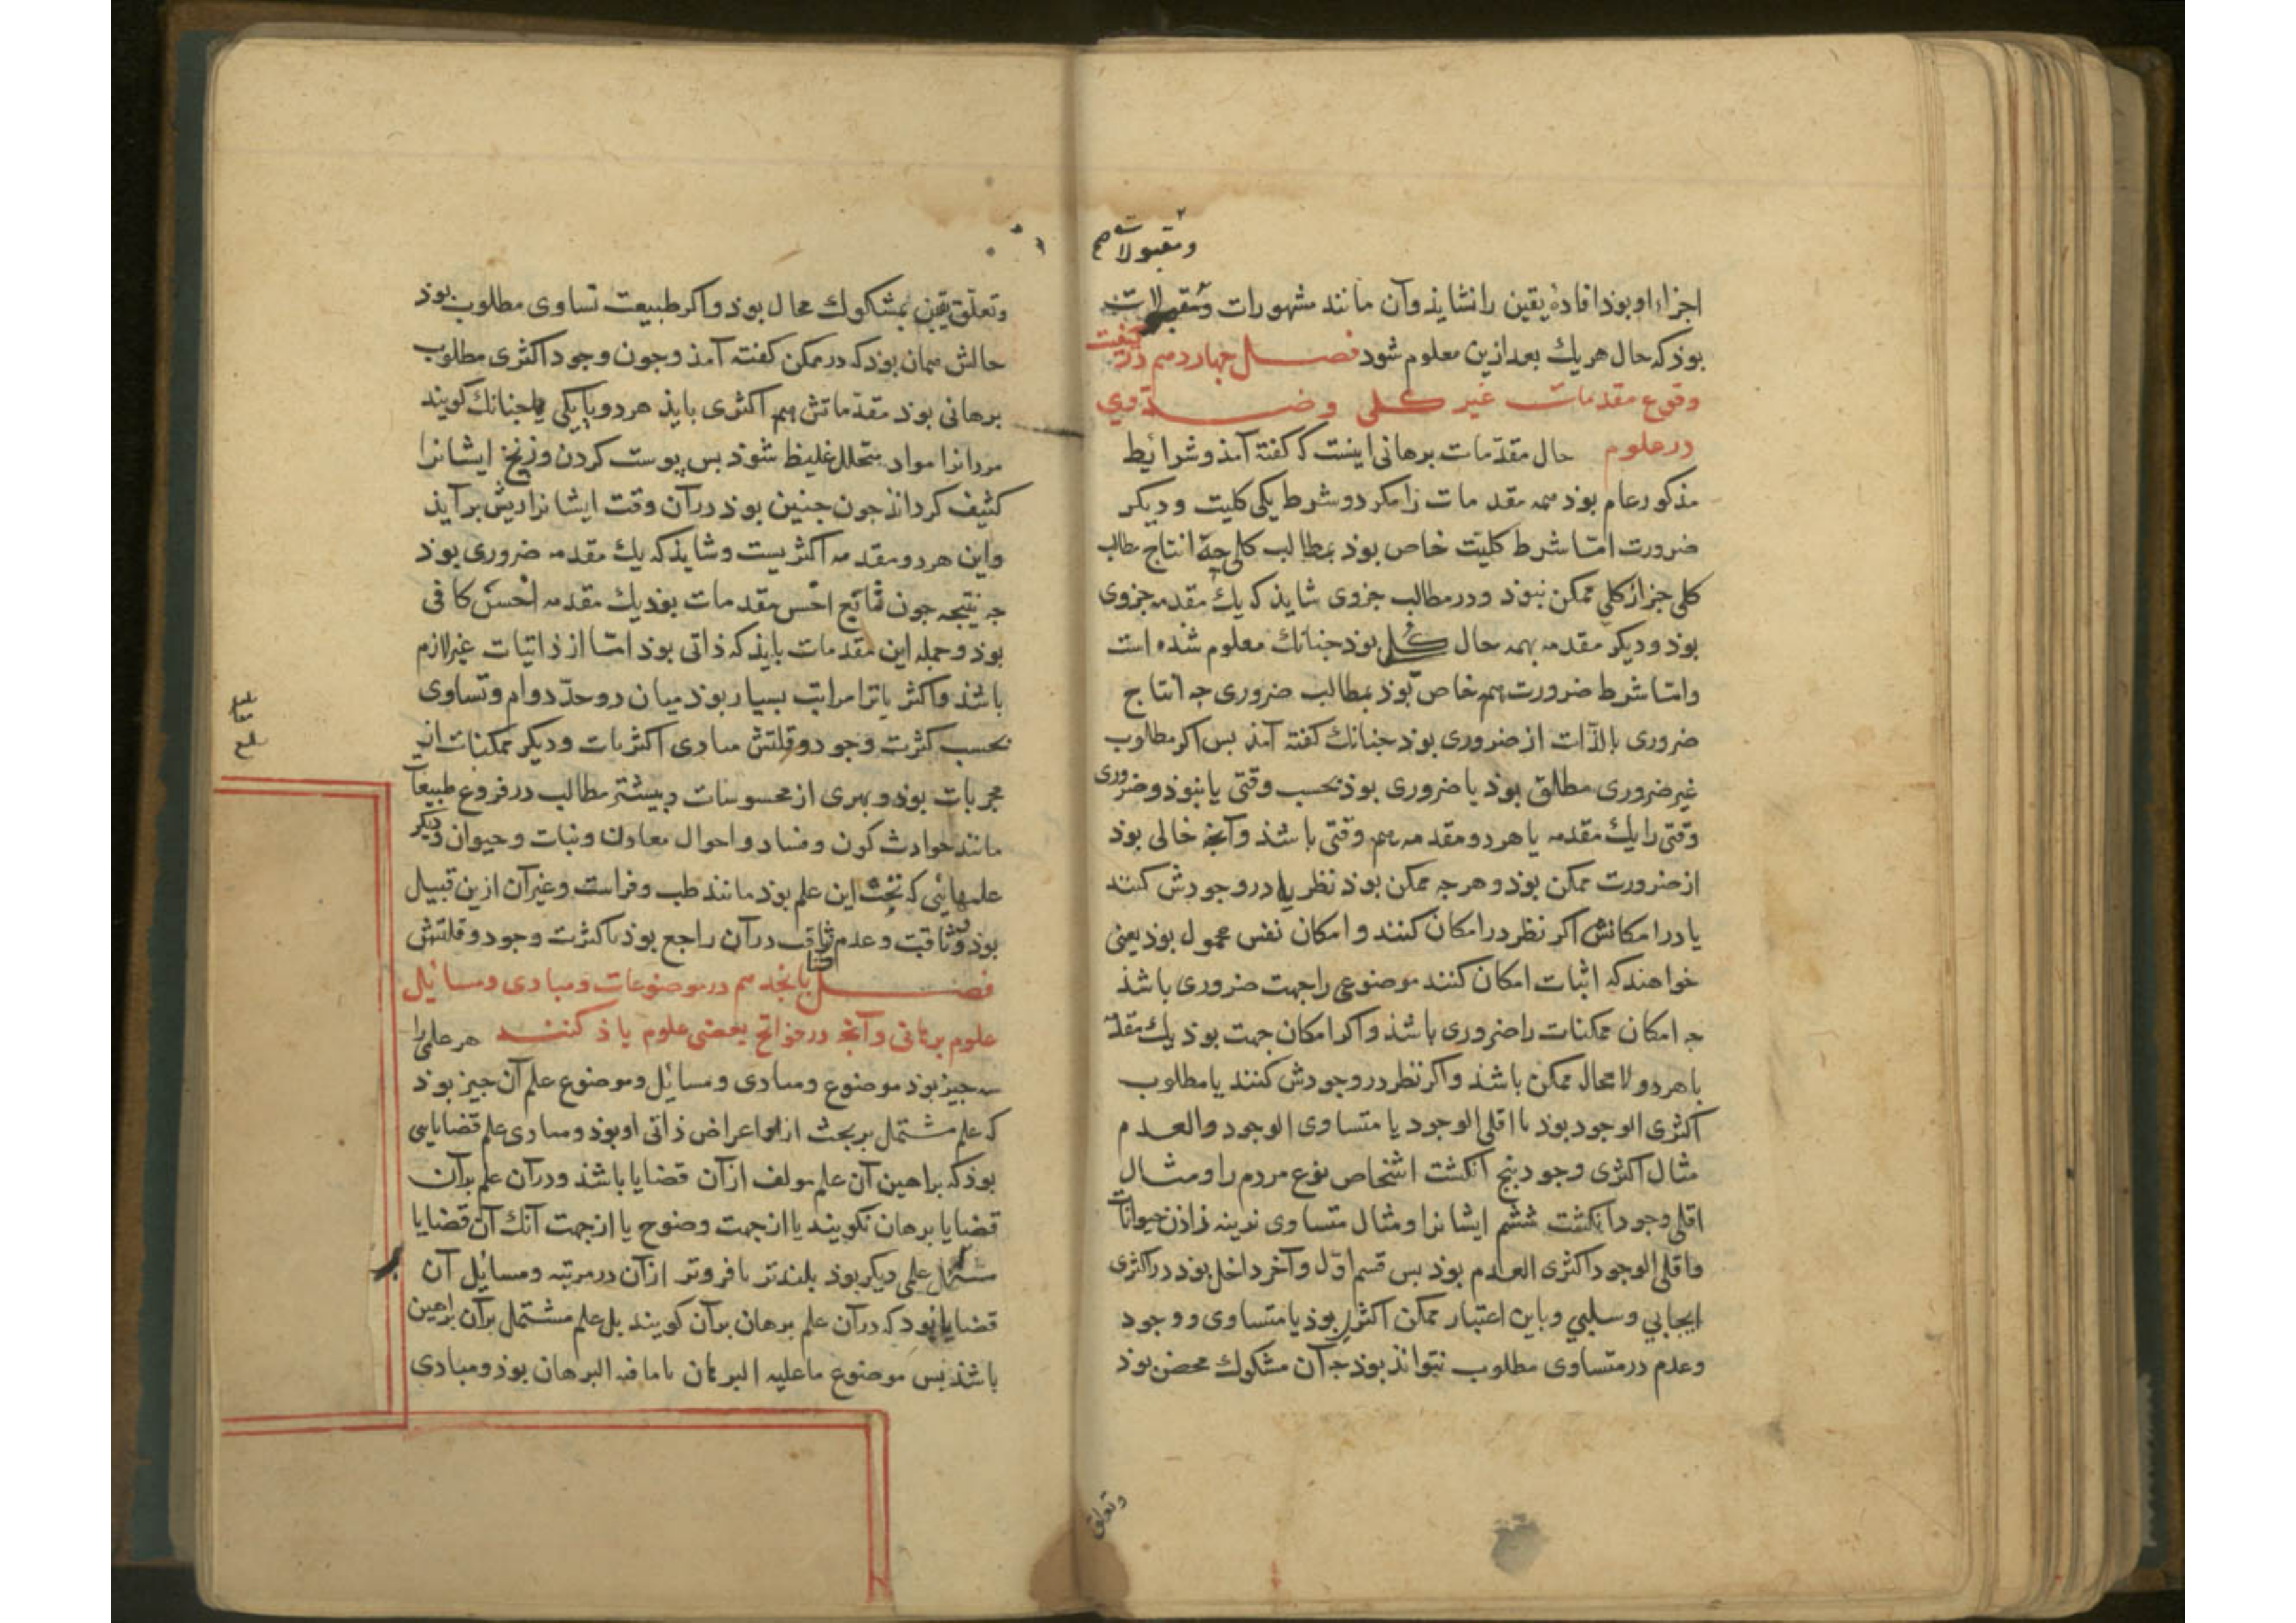 ومقبولات صح
اجزاء او بوذ افادهٔ یقین را نشایذ وآن مانند مشهورات ومقبولات
بوذ که حال هر یك بعد ازین معلوم شود فصل چهاردهم در کیفیت
وقوع مقدمات غیر کلی وضروری
در علوم حال مقدّمات برهانی اینست که کفته آمذ وشرائط
مذکور عام بوذ همه مقدمات را مکر دو شرط یکی کلیت ودیکر
ضرورت امّا شرط کلیّت خاص بوذ بمطالب کلی چه انتاج مطالب
کلی جز از کلی ممکن نبوذ ودر مطالب جزوی شایذ که یك مقدمه جزوی
بوذ ودیکر مقدمه بهمه حال کلی بوذ جنانك معلوم شذه است
وامّا شرط ضرورت هم خاص بوذ بمطالب ضروری جه انتاج
ضروری بالذّات از ضروری بوذ جنانك کفته آمذ بس اکر مطلوب
غیر ضروری مطلق بوذ یا ضروری بوذ بحسب وقتی یا نبوذ وضروری
وقتی را یك مقدمه یا هر دو مقدمه هم وقتی باشذ وآنج خالی بوذ
از ضرورت ممکن بوذ وهر جه ممکن بوذ نظر یا در وجودش کنند
یا در امکانش اکر نظر در امکان کنند وامکان نفس محمول بوذ یعنی
خواهند که اثبات امکان کنند موضوعی را جهت ضروری باشذ
جه امکان ممکنات را ضروری باشذ واکر امکان جهت بوذ یك مقدمه
یا هر دو لا محال ممکن باشذ واکر نظر در وجودش کنند یا مطلوب
اکثری الوجود بوذ یا اقلی الوجود یا متساوی الوجود والعدم
مثال اکثری وجود پنج انکشت اشخاص نوع مردم را ومثال
اقلی وجود انکشت ششم ایشانرا ومثال متساوی نرینه زاذن حیوانات
واقلی الوجود اکثری العدم بوذ بس قسم اوّل وآخر داخل بوذ در اکثری
ایجابی وسلبی وباین اعتبار ممکن اکثری بوذ یا متساوی ووجود
وعدم در متساوی مطلوب نتواند بوذ جه آن مشکوك محض بوذ
وتعلق
وتعلّق یقین بمشکوك محال بوذ واکر طبیعت تساوی مطلوب بوذ
حالش همان بوذ که در ممکن کفته آمذ وجون وجود اکثری مطلوب
برهانی بوذ مقدّماتش هم اکثری بایذ هر دو یا یکی جنانك کویند
مردانرا مواد متحلل غلیظ شوذ بس پوست کردن وزنخ ایشانرا
کثیف کرداند جون جنین بوذ در آن وقت ایشانرا ریش برآیذ
واین هر دو مقدمه اکثریست وشایذ که یك مقدمه ضروری بوذ
جه نتیجه جون تابع اخس مقدمات بوذ یك مقدمه اخسّ کافی
بوذ وجمله این مقدمات بایذ که ذاتی بوذ امّا از ذاتیات غیر لازم
باشذ واکثریات را مراتب بسیار بوذ میان دو حدّ دوام وتساوی
بحسب کثرت وجود وقلتش مبادی اکثریات ودیکر ممکنات از
مجربات بوذ وبهری از محسوسات وبیشتر مطالب در فروع طبیعیات
مانند حوادث کون وفساد واحوال معادن ونبات وحیوان ودیکر
علمهائی که تحت این علم بوذ مانند طب وفراست وغیر آن ازین قبیل
بوذ ووثاقت وعدم وثاقت در آن راجع بوذ با کثرت وجود وقلتش
فصل پانجدهم در موضوعات ومبادی ومسائل
علوم برهانی وآنج در فواتح بعضی علوم یاذ کنند هر علمی را
سه جیز بوذ موضوع ومبادی ومسائل وموضوع علم آن جیز بوذ
که علم مشتمل بر بحث از اعراض ذاتی او بوذ ومبادی علم قضایایی
بوذ که براهین آن علم مولف از آن قضایا باشذ ودر آن علم بر آن
قضایا برهان نکویند یا از جهت وضوح یا از جهت آنك آن قضایا
مسائل علمی دیکر بوذ بلندتر یا فروتر از آن در مرتبه ومسائل آن
قضایا بود که در آن علم برهان بر آن کویند بل علم مشتمل بر آن براهین
باشذ بس موضوع ما علیه البرهان یا ما فیه البرهان بوذ ومبادی